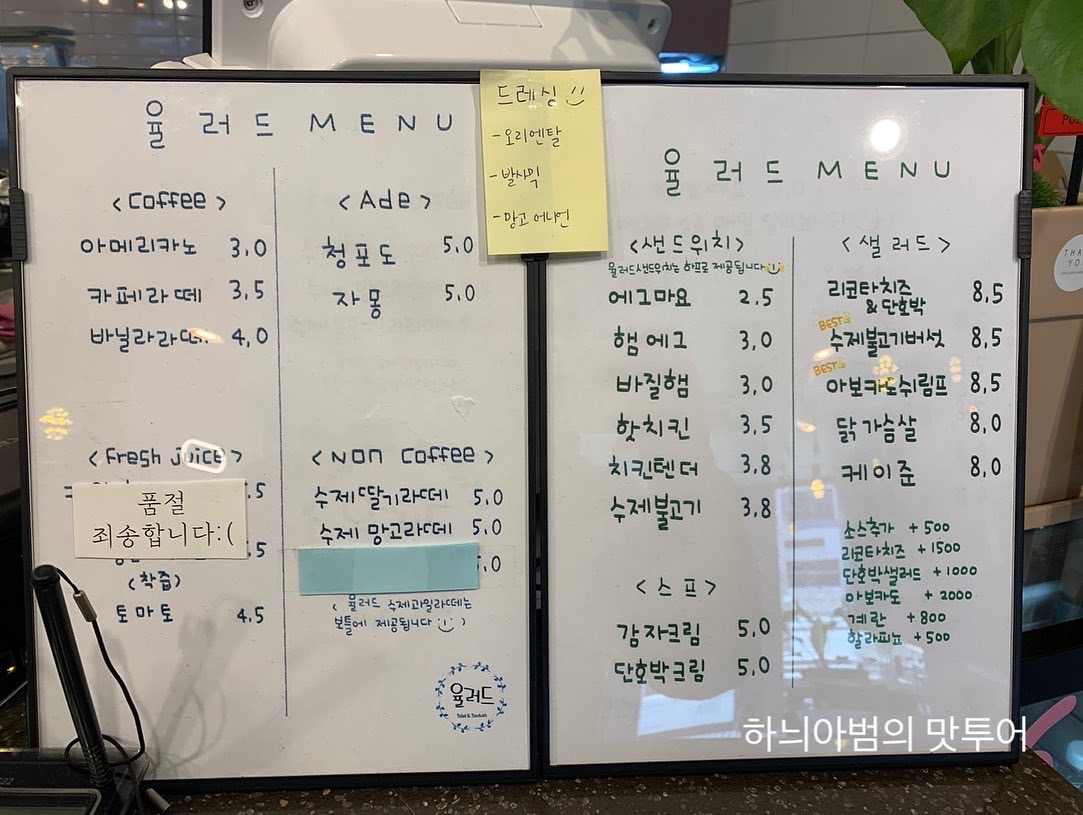 율러드 MENU
<Coffee>
아메리카노 3,0
카페라떼 3,5
바닐라라떼 4,0
<Ade>
청포도 5.0
자몽 5.0
<Fresh juice>
.5
품절
죄송합니다:(
.5
(착즙)
토마토 4.5
<Non Coffee>
수제딸기라떼 5.0
수제 망고라떼 5.0
.0
(율러드 수제과일라떼는
보틀에 제공됩니다 )
율러드
Salad & Sandwich
드레싱
-오리엔탈
-발사믹
-망고 어니언
율러드 MENU
<샌드위치>
율러드샌드위치는 하프로 제공됩니다
에그마요 2.5
햄에그 3,0
바질햄 3,0
핫치킨 3,5
치킨텐더 3,8
수제불고기 3,8
<스프>
감자크림 5,0
단호박크림 5,0
<샐러드>
리코타치즈
&단호박 8,5
BEST
수제불고기버섯 8,5
BEST
아보카도쉬림프 8,5
닭가슴살 8,0
케이준 8,0
소스추가 +500
리코타치즈 +1500
단호박샐러드 +1000
아보카도 +2000
계란 +800
할라피뇨 +500
THA
YO
하늬아범의 맛투어